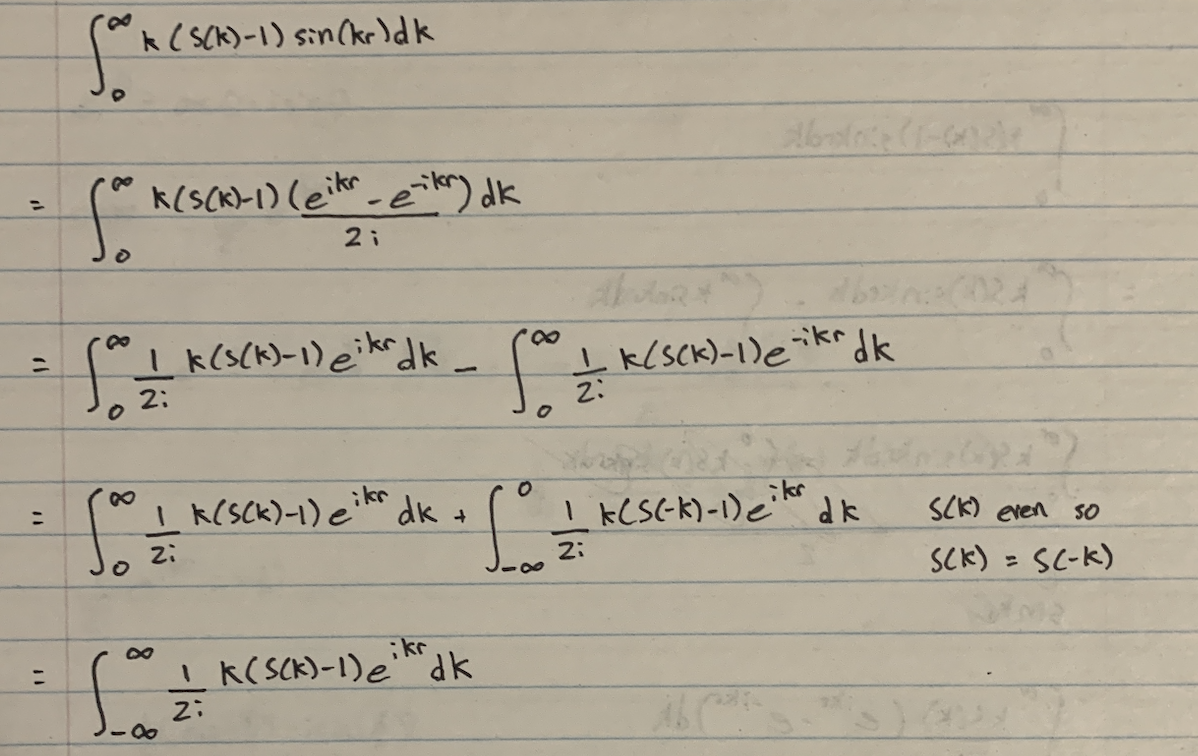 ∫₀^∞ k(S(k)-1) sin(kr)dk
= ∫₀^∞ k(S(k)-1) (e^{ikr} - e^{-ikr})/2i dk
= ∫₀^∞ 1/2i k(S(k)-1) e^{ikr} dk - ∫₀^∞ 1/2i k(S(k)-1) e^{-ikr} dk
= ∫₀^∞ 1/2i k(S(k)-1) e^{ikr} dk + ∫_{-∞}^0 1/2i k(S(-k)-1) e^{ikr} dk S(k) even so
S(k) = S(-k)
= ∫_{-∞}^∞ 1/2i k(S(k)-1) e^{ikr} dk